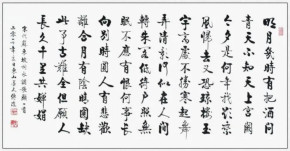 明月幾時有把酒問
青天不知天上宮闕
今夕是何年我欲乘
風歸去又恐瓊樓玉
宇高處不勝寒起舞
弄清影何似在人間
轉朱閣低綺戶照無
眠不應有恨何事長
向別時圓人有悲歡
離合月有陰晴圓缺
此事古難全但願人
長久千里共嬋娟